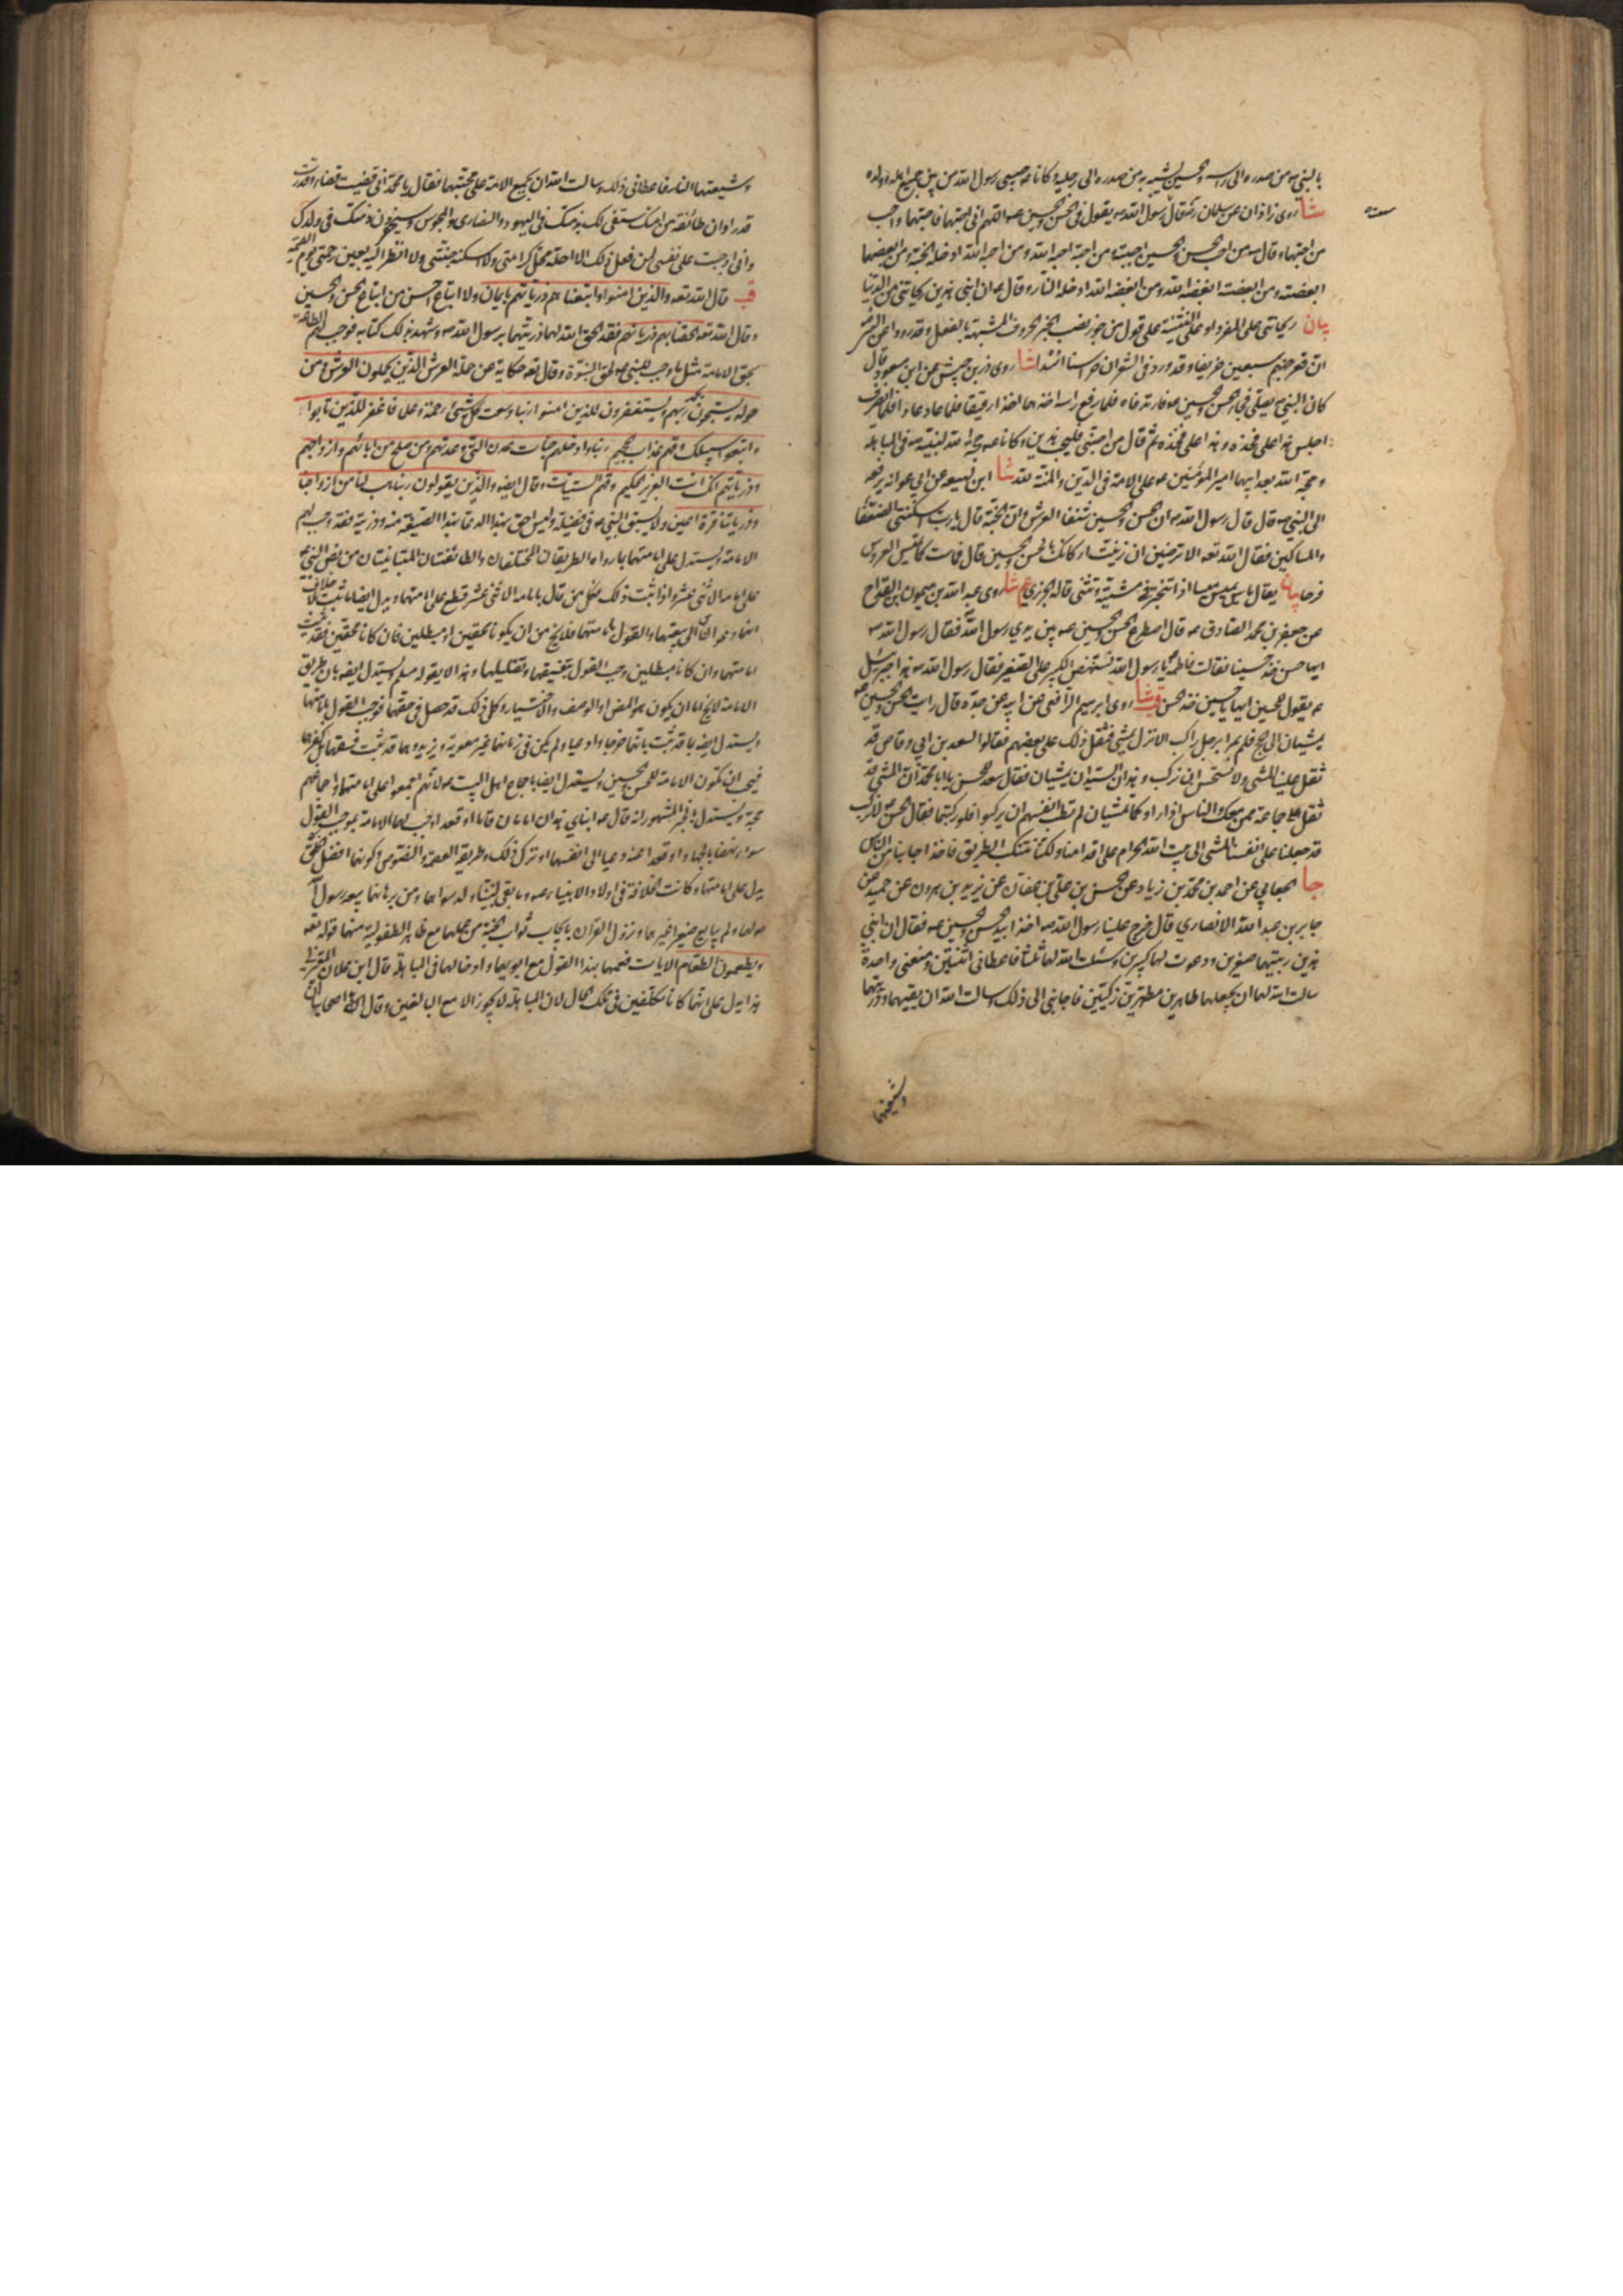 بالنبي ص من صدره الى راسه والحسين يشبه به من صدره الى رجليه وكانا ع حبيبي رسول الله من بين جميع اهله وولده
شا روى زاذان عن سلمان رض قال رسول الله ص يقول في الحسن والحسين ع اللهم اني احبهما فاحبهما واحب
من احبهما وقال ص من احب الحسن والحسين احببته ومن احببته احبه الله ومن احبه الله ادخله الجنة ومن ابغضهما
ابغضته ومن ابغضته ابغضه الله ومن ابغضه الله ادخله النار وقال ص ان ابني هذين ريحانتي من الدنيا
بيان ريحانتي على المفرد او على التثنية على قول من جوز نصب الخبر بالحروف المشبهة بالفعل وقد رووا عن النبي
ان قعر جهنم سبعين خريفا وقد ورد في الشعر ان حراسنا اسدا شا روى زر بن حبيش عن ابن مسعود قال
كان النبي ص يصلي فجاء الحسن والحسين ع فارتدفاه فلما رفع راسه اخذهما اخذا رفيقا فلما عاد عادا فلما انصرف
اجلس هذا على فخذه وهذا على فخذه ثم قال من احبني فليحب هذين وكانا ع حجة الله لنبيه ص في المباهلة
وحجة الله بعد ابيهما امير المؤمنين ع على الامة في الدين والمنة لله شا ابن لهيعة عن ابي عوانه يرفعه
الى النبي ص قال قال رسول الله ص ان الحسن والحسين شنفا العرش وان الجنة قال يا رب اسكنتني الضعفاء
والمساكين فقال الله تعه الا ترضين اني زينت اركانك بالحسن والحسين قال فماست كما تميس العروس
فرحا بيان يقال ماس يميس ميسا اذا تبختر في مشيته وتثنى قاله الجزري عم شا روى عبد الله بن ميمون بن القداح
عن جعفر بن محمد الصادق ع قال اصطرع الحسن والحسين ع بين يدي رسول الله فقال رسول الله ص
ايها حسن خذ حسينا فقالت فاطمة يا رسول الله تستنهض الكبير على الصغير فقال رسول الله ص هذا جبرئيل
ع يقول للحسين ايها يا حسين خذ الحسن قب شا روى ابرهيم الرافعي عن ابيه عن جده قال رايت الحسن والحسين ع
يمشيان الى الحج فلم يمرا برجل راكب الا نزل يمشي فثقل ذلك على بعضهم فقالوا لسعد بن ابي وقاص قد
ثقل علينا المشي ولا نستحسن ان نركب وهذان السيدان يمشيان فقال سعد للحسن يا ابا محمد ان المشي قد
ثقل على جماعة ممن معك والناس اذا راوكما تمشيان لم تطب انفسهم ان يركبوا فلو ركبتما فقال الحسن ع لا نركب
قد جعلنا على انفسنا المشي الى بيت الله الحرام على اقدامنا ولكننا نتنكب الطريق فاخذا جانبا من الناس
جا الجعابي عن احمد بن محمد بن زياد عن الحسن بن علي بن عفان عن يزيد بن هرون عن حميد عن
جابر بن عبد الله الانصاري قال خرج علينا رسول الله ص اخذا بيد الحسن والحسين ع فقال ان ابني
هذين ربيتهما صغيرين ودعوت لهما كبيرين وسئلت الله لهما ثلثا فاعطاني اثنتين ومنعني واحدة
سالت الله لهما ان يجعلهما طاهرين مطهرين زكيين فاجابني الى ذلك وسالت الله ان يقيهما وذريتهما
وشيعتهما
وشيعتهما النار فاعطاني ذلك وسالت الله ان يجمع الامة على محبتهما فقال يا محمد اني قضيت قضاء وقدرت
قدرا وان طائفة من امتك ستفي لك بذمتك في اليهود والنصارى والمجوس وسيخفرون ذمتك في ولدك
واني اوجبت على نفسي لمن فعل ذلك الا احله محل كرامتي ولا اسكنه جنتي ولا انظر اليه بعين رحمتي يوم القيمة
قب قال الله تعه والذين امنوا واتبعناهم ذرياتهم بايمان ولا اتباع احسن من اتباع الحسن والحسين
وقال الله تعه الحقنا بهم ذرياتهم فقد الحق الله لهما ذريتهما برسول الله ص وشهد بذلك كتابه فوجب لهم الطاعة
بحق الامامة مثل ما وجب للنبي ص لحق النبوة وقال تعه حكاية عن حملة العرش الذين يحملون العرش ومن
حوله يسبحون بحمد ربهم ويستغفرون للذين امنوا ربنا وسعت كل شئ رحمة وعلما فاغفر للذين تابوا
واتبعوا سبيلك وقهم عذاب الجحيم ربنا وادخلهم جنات عدن التي وعدتهم ومن صلح من ابائهم وازواجهم
وذرياتهم انك انت العزيز الحكيم وقهم السيئات وقال ايضه والذين يقولون ربنا هب لنا من ازواجنا
وذرياتنا قرة اعين ولا يسبق النبي ص في فضيلة وليس احق بهذا الدعاء بهذا الصيغة منه وذريته فقد وجب لهم
الامامة ويستدل على امامتهما بما رواه الطريقان المختلفان والطائفتان المتباينتان من نص النبي ص
على امامة الاثنى عشر واذا ثبت ذلك فكل من قال بامامة الاثنى عشر قطع على امامتهما ويدل ايضا ما ثبت بلا خلاف
انهما دعوا الناس الى بيعتهما والقول بامامتهما فلا يخ من ان يكونا محقين او مبطلين فان كانا محقين فقد ثبتت
امامتهما وان كانا مبطلين وجب القول بتفسيقهما وتضليلهما وهذا لا يقوله مسلم ويستدل ايضه بان طريق
الامامة لا يخ اما ان يكون هو النص او الوصف والاختيار وكل ذلك قد حصل في حقهما فوجب القول بامامتهما
ويستدل ايضه بما قد ثبت بانهما خرجا وادعيا ولم يكن في زمانهما غير معوية ويزيد وهما قد ثبت فسقهما بل كفرهما
فيجب ان تكون الامامة للحسن والحسين ويستدل ايضا باجماع اهل البيت ع لانهم اجمعوا على امامتهما واجماعهم
حجة ويستدل بالخبر المشهور انه قال ص ابناي هذان امامان قاما او قعدا اوجب لهما الامامة بموجب القول
سواء نهضا بالجهاد او قعدا عنه دعيا الى انفسهما او تركا ذلك وطريقة العصمة والنصوص وكونهما افضل الخلق
يدل على امامتهما وكانت الخلافة في اولاد الانبياء ع وما بقي لنبينا ولد سواهما ومن برهانهما بيعة رسول الله
ص لهما ولم يبايع صغيرا غيرهما ونزول القران بايجاب ثواب الجنة من عملهما مع ظاهر الطفولية منهما قوله تعه
ويطعمون الطعام الايات فعمهما بهذا القول مع ابويهما وادخالهما في المباهلة قال ابن علان المعتزلي
هذا يدل على انهما كانا مكلفين في تلك الحال لان المباهلة لا يجوز الا مع البالغين وقال اصحابنا ان